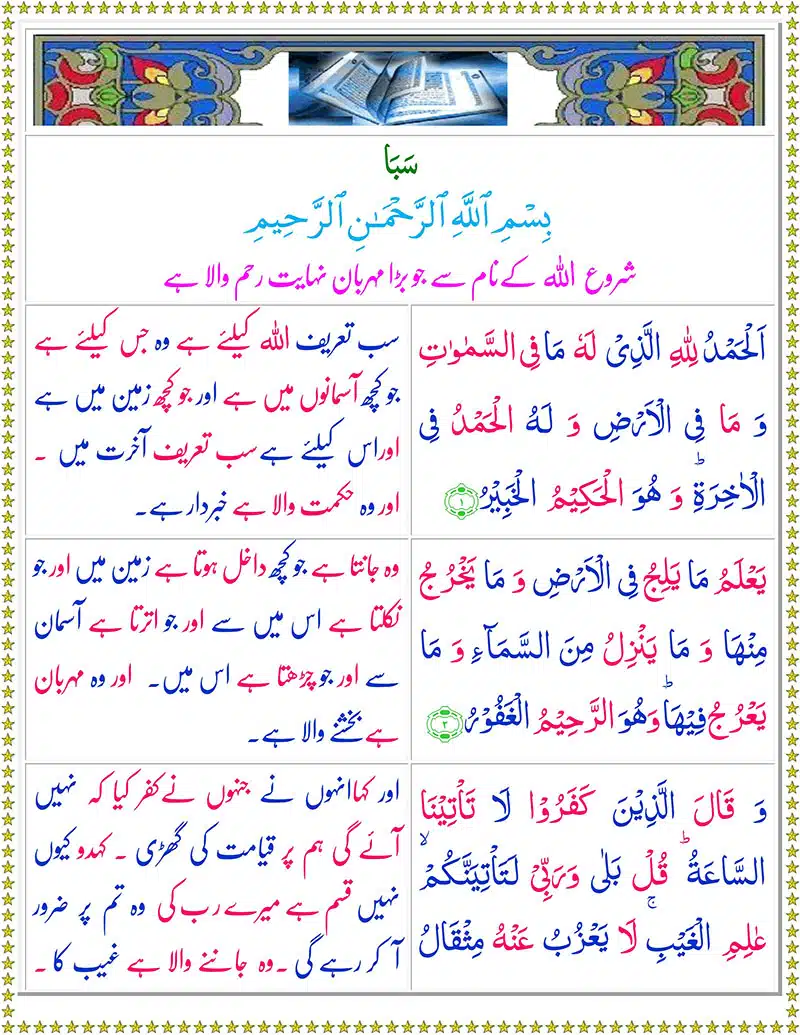 سَبَا
بِسْمِ ٱللَّهِ ٱلرَّحْمَـٰنِ ٱلرَّحِيمِ
شروع اللہ کے نام سے جو بڑا مہربان نہایت رحم والا ہے
اَلْحَمْدُ لِلّٰهِ الَّذِیْ لَهٗ مَا فِی السَّمٰوٰتِ
وَ مَا فِی الْاَرْضِ وَ لَهُ الْحَمْدُ فِی
الْاٰخِرَةِؕ وَ هُوَ الْحَكِیْمُ الْخَبِیْرُ ۝۱
سب تعریف اللہ کیلئے ہے وہ جس کیلئے ہے
جو کچھ آسمانوں میں ہے اور جو کچھ زمین میں ہے
اور اس کیلئے ہے سب تعریف آخرت میں ۔
اور وہ حکمت والا ہے خبردار ہے۔
یَعْلَمُ مَا یَلِجُ فِی الْاَرْضِ وَ مَا یَخْرُجُ
مِنْهَا وَ مَا یَنْزِلُ مِنَ السَّمَآءِ وَ مَا
یَعْرُجُ فِیْهَاؕ وَهُوَ الرَّحِیْمُ الْغَفُوْرُ ۝۲
وہ جانتا ہے جو کچھ داخل ہوتا ہے زمین میں اور جو
نکلتا ہے اس میں سے اور جو اترتا ہے آسمان
سے اور جو چڑھتا ہے اس میں۔ اور وہ مہربان
ہے بخشنے والا ہے۔
وَ قَالَ الَّذِیْنَ كَفَرُوْا لَا تَاْتِیْنَا
السَّاعَةُؕ قُلْ بَلٰی وَرَبِّیْ لَتَاْتِیَنَّكُمْۙ
عٰلِمِ الْغَیْبِۚ لَا یَعْزُبُ عَنْهُ مِثْقَالُ
اور کہا انہوں نے جنہوں نے کفر کیا کہ نہیں
آئے گی ہم پر قیامت کی گھڑی ۔ کہدو کیوں
نہیں قسم ہے میرے رب کی وہ تم پر ضرور
آ کر رہے گی ۔وہ جاننے والا ہے غیب کا ۔